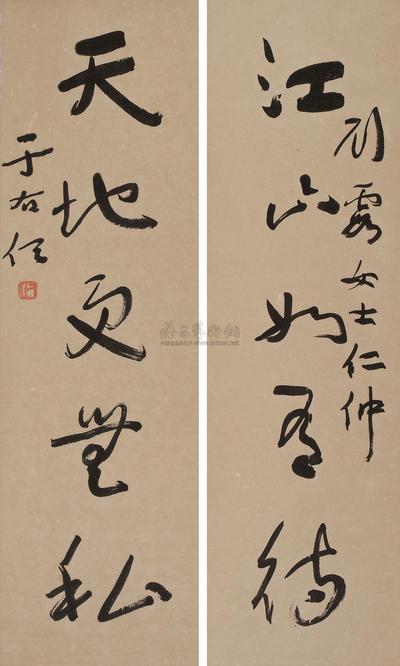 江山如有待
女士仁仲
天地更無私
于右任